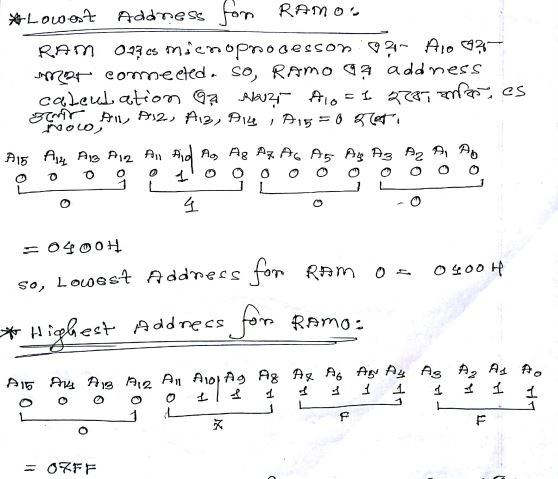 *Lowest Address for RAM0:
RAM 0 microprocessor এর A10 এর
সাথে connected. So, RAM0 এর address
calculation এর সময় A10 = 1 হবে। বাকি CS
গুলো A11, A12, A13, A14, A15 = 0 হবে।
Now,
A15 A14 A13 A12 A11 A10 A9 A8 A7 A6 A5 A4 A3 A2 A1 A0
0 0 0 0 0 1 0 0 0 0 0 0 0 0 0 0
0 4 0 0
= 0400H
So, Lowest Address for RAM 0 = 0400H
* Highest Address for RAM0:
A15 A14 A13 A12 A11 A10 A9 A8 A7 A6 A5 A4 A3 A2 A1 A0
0 0 0 0 0 1 1 1 1 1 1 1 1 1 1 1
0 7 F F
= 07FF